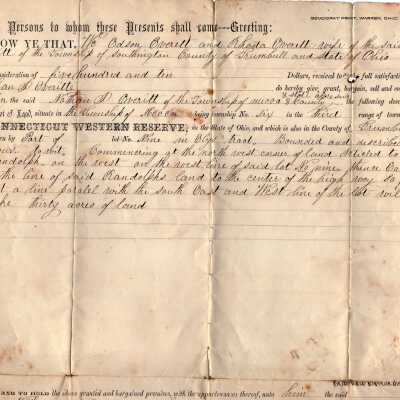 DEMOCRAT PRINT, WARREN, OHIO
Persons to whom these Presents shall come—Greeting:
OW YE THAT, We Edson Everett and Rhoda Everett wife of the said
tt of the Township of Southington County of Trumbull and State of Ohio
nsideration of five hundred and ten Dollars, received to full satisfaction
an P. Everitt do hereby give, grant, bargain, sell and
the said Nathan P. Everitt of the Township of Mecca & County & State aforesaid the following
situate in the Township of Mecca being township No. six in the third range of
NNECTICUT WESTERN RESERVE, in the State of Ohio, and which is also in the County of Trumbull
wn by Part of lot No. Nine in Tract, Bounded and described
to wit, Commencing at the north west corner of land Articled to
andolph, on the west on the west line of said lot No nine thence
the line of said Randolphs land to the center of the high way so
t a line paralel with the south East and West line of the lot wil
he thirty acres of land
AND TO HOLD the above granted and bargained premises, with the appurtenances thereof, unto him the said